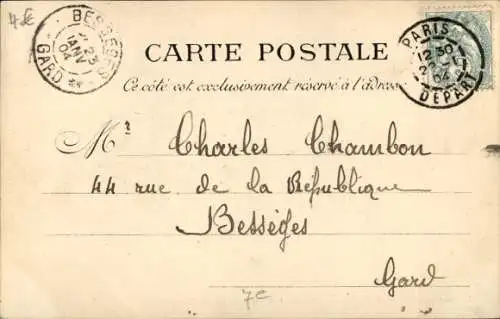 4€
BESSEGES
23
JANV
04
GARD
PARIS
12 30
2
04
DEPART
CARTE POSTALE
Ce côté est exclusivement réservé à l'adresse
Mr Charles Chambon
44 rue de la République
Bessèges
Gard
7€